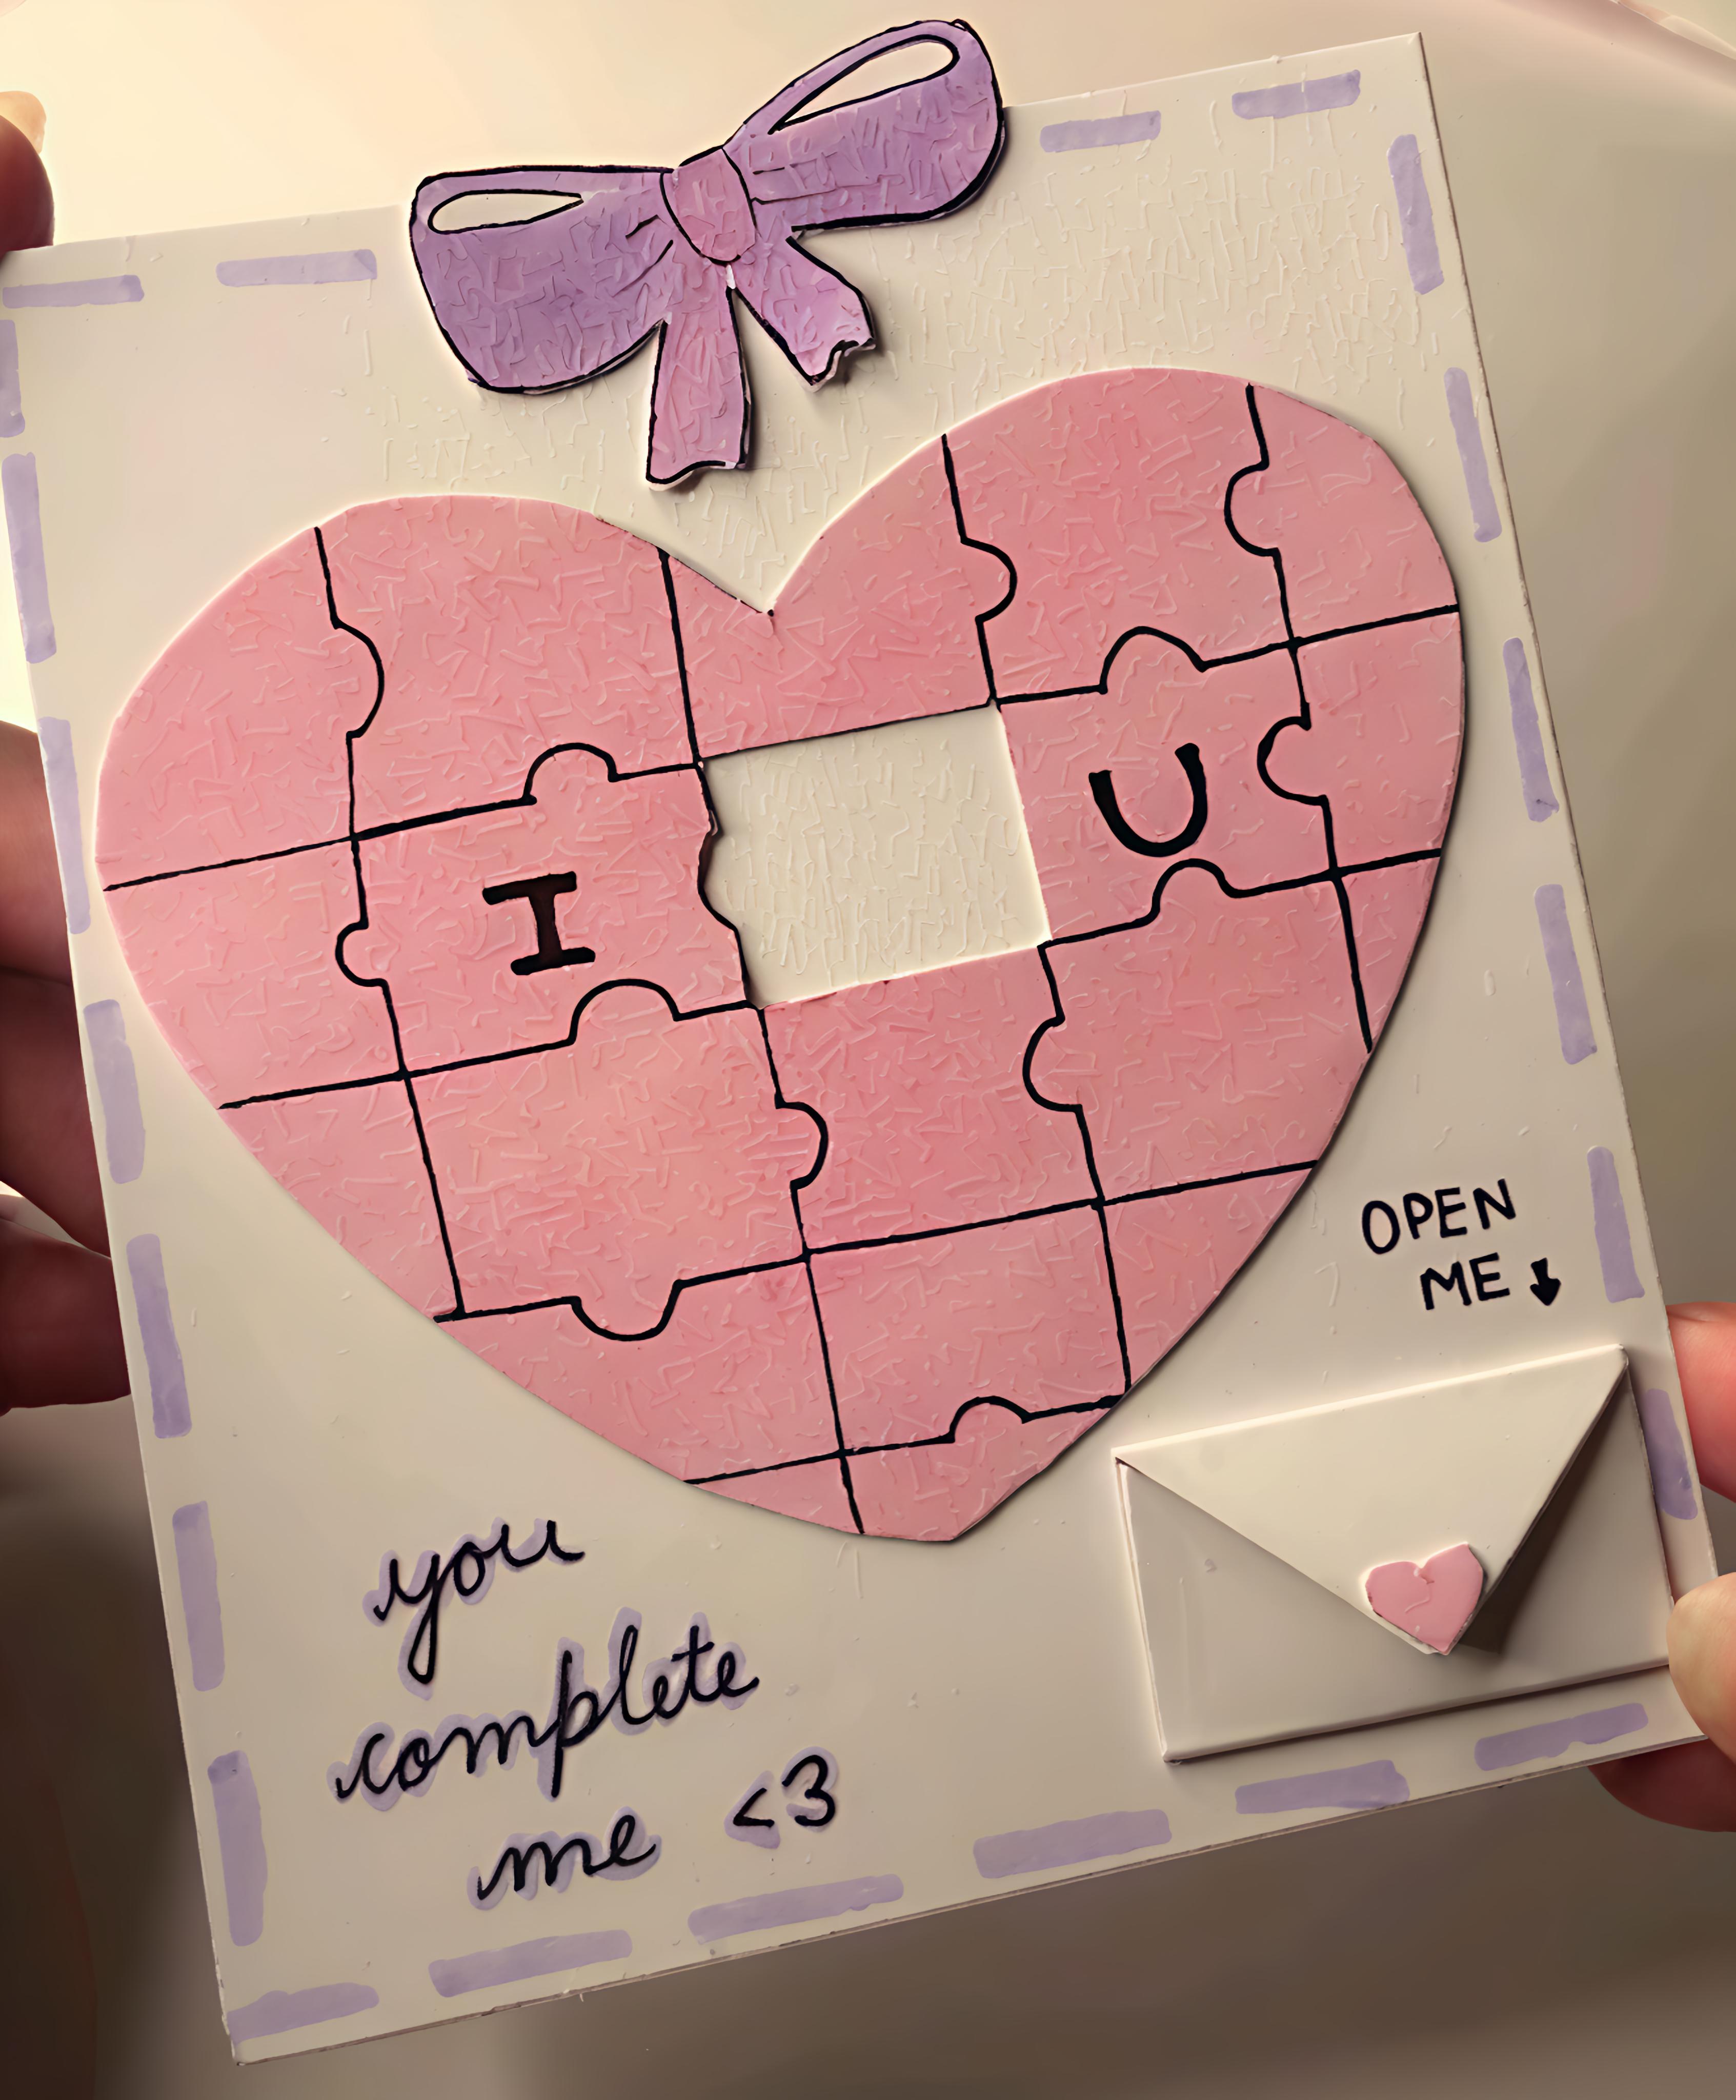 I U
OPEN
ME ↓
you
complete
me <3